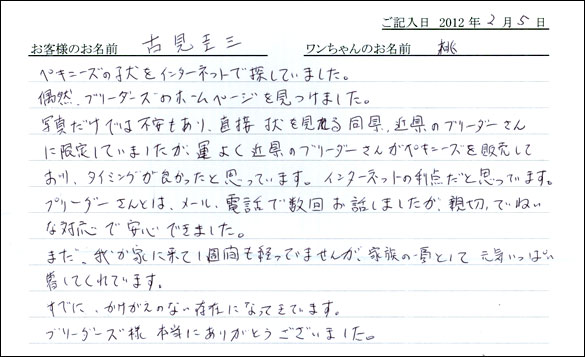 ご記入日 2012年2月5日
お客様のお名前 古見圭三 ワンちゃんのお名前 桃
ペキニーズの子犬をインターネットで探していました。
偶然、ブリーダーズのホームページを見つけました。
写真だけでは不安もあり、直接犬を見れる同県、近県のブリーダーさん
に限定していましたが、運よく近県のブリーダーさんがペキニーズを販売して
おり、タイミングが良かったと思っています。インターネットの利点だと思っています。
ブリーダーさんとは、メール、電話で数回お話しましたが、親切、ていねい
な対応で安心できました。
まだ、我が家に来て1週間も経ってませんが、家族の一員として元気いっぱい
暮してくれています。
すでに、かけがえのない存在になってきています。
ブリーダーズ様 本当にありがとうございました。